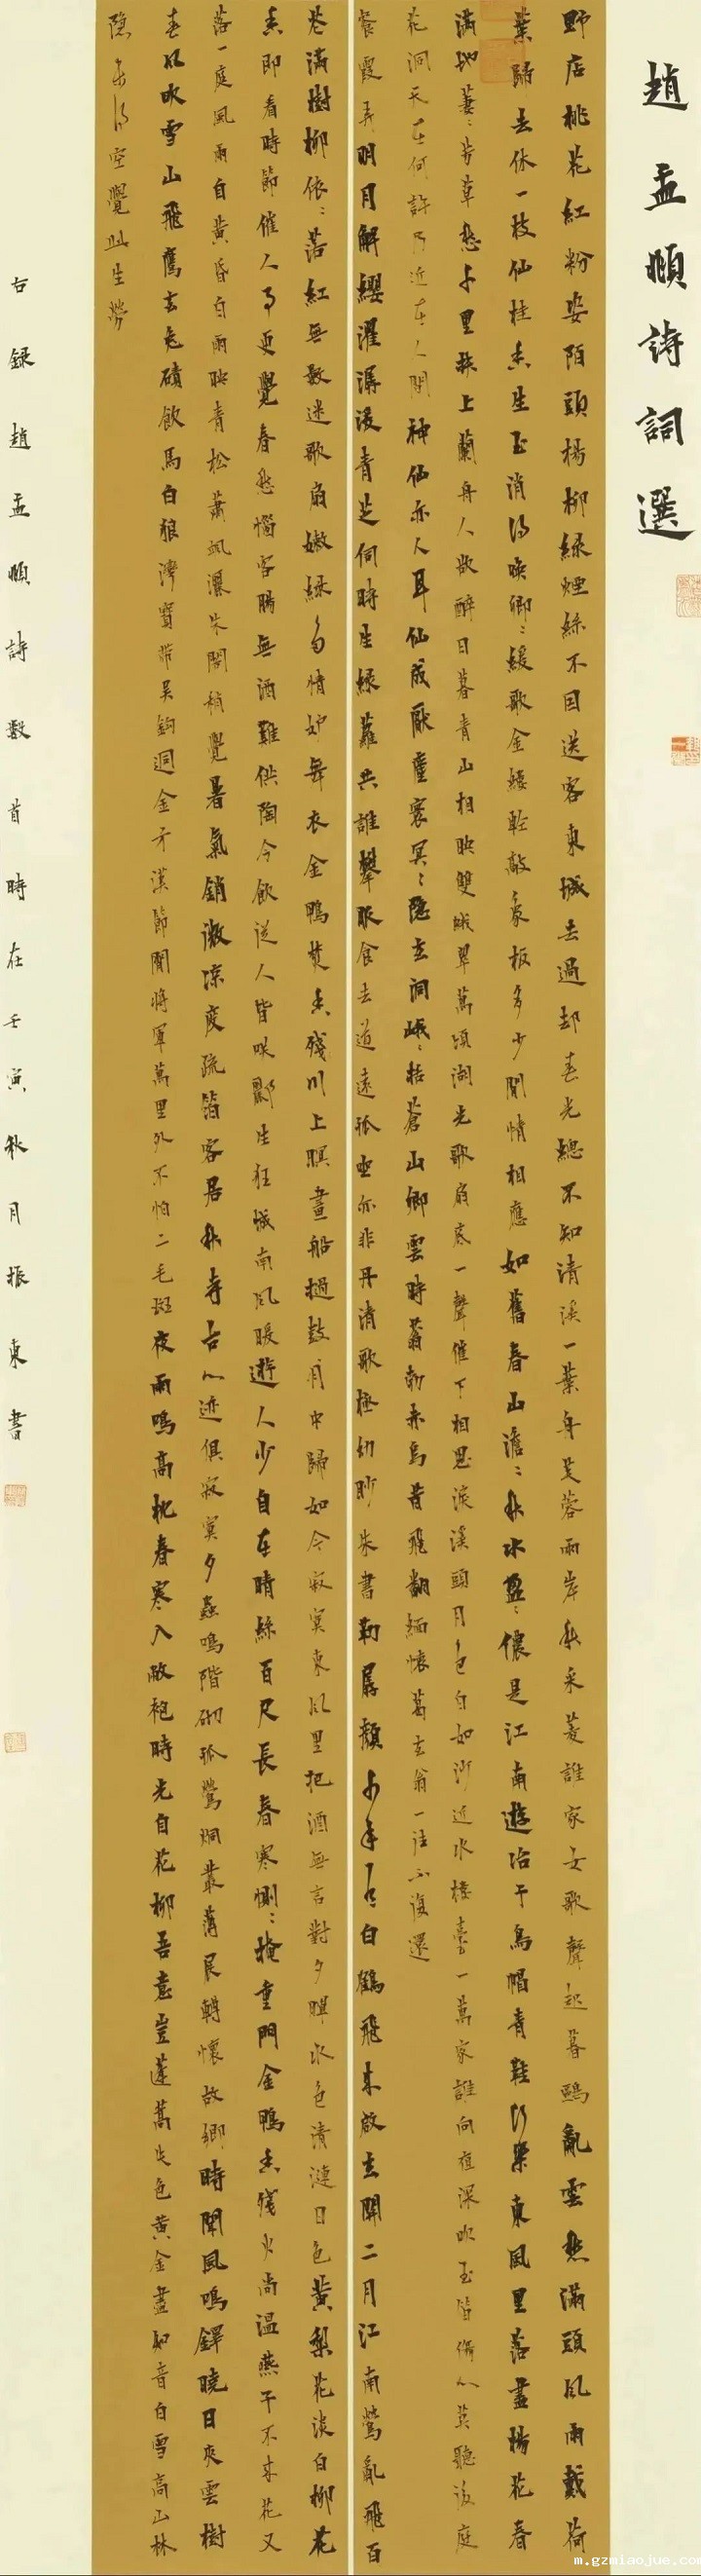 趙孟頫詩詞選
野店桃花紅粉姿陌頭楊柳綠煙絲不因送客東城去過却春光總不知清溪一葉舟芙蓉兩岸秋采菱誰家女歌聲起暮鷗亂雲愁滿頭風雨戴荷
葉歸去休一枝仙桂香生玉消得喚卿卿緩歌金縷輕敲象板多少閒情相應如舊春山澹澹秋水盈盈儂是江南遊冶子烏帽青鞋行樂東風里落盡楊花春
滿地萋萋芳草愁千里扶上蘭舟人欲醉日暮青山相映雙蛾翠萬頃湖光歌扇底一聲催下相思淚溪頭月色白如沙近水樓臺一萬家誰向夜深吹玉笛傷心莫聽後庭
花洞天在何許乃近在人間神仙亦人耳仙成厭塵寰冥冥隱玄洞峨峨括蒼山鄉雲時蓊勃赤烏昔飛翻緬懷葛玄翁一往不復還
餐霞弄明月解纓濯潺湲青芝何時生綠蘿共誰攀服食去道遠孤坐亦非丹清歌極幼眇朱書勒孱顏千年有白鶴飛來啟玄關二月江南鶯亂飛百
花滿樹柳依依落紅無數迷歌扇嫩綠多情妒舞衣金鴨焚香殘川上暝畫船撾鼓月中歸如今寂寞東風里把酒無言對夕暉水色清漣日色黃梨花淡白柳花
香即看時節催人事更覺春愁惱客腸無酒難供陶令飲從人皆笑酈生狂城南風暖遊人少自在晴絲百尺長春寒惻惻掩重門金鴨香殘火尚温燕子不來花又
落一庭風雨自黃昏白雨映青松蕭颯灑朱閣稍覺暑氣銷微涼度疏箔客居秋寺古心迹俱寂寞夕蟲鳴階砌孤螢炯叢薄展轉懷故鄉時聞風鳴鐸曉日夾雲樹
春風吹雪山飛鷹玄兔磧飲馬白狼灣寶帶吳鉤迴金牙漢節閒將軍萬里外不怕二毛斑夜雨鳴高枕春寒入敝袍時光自花柳吾意豈蓬蒿失色黃金盡知音白雪高山林
隱未得空覺此生勞
右錄趙孟頫詩數首時在壬寅秋月振東書
m.gzmiaojue.com